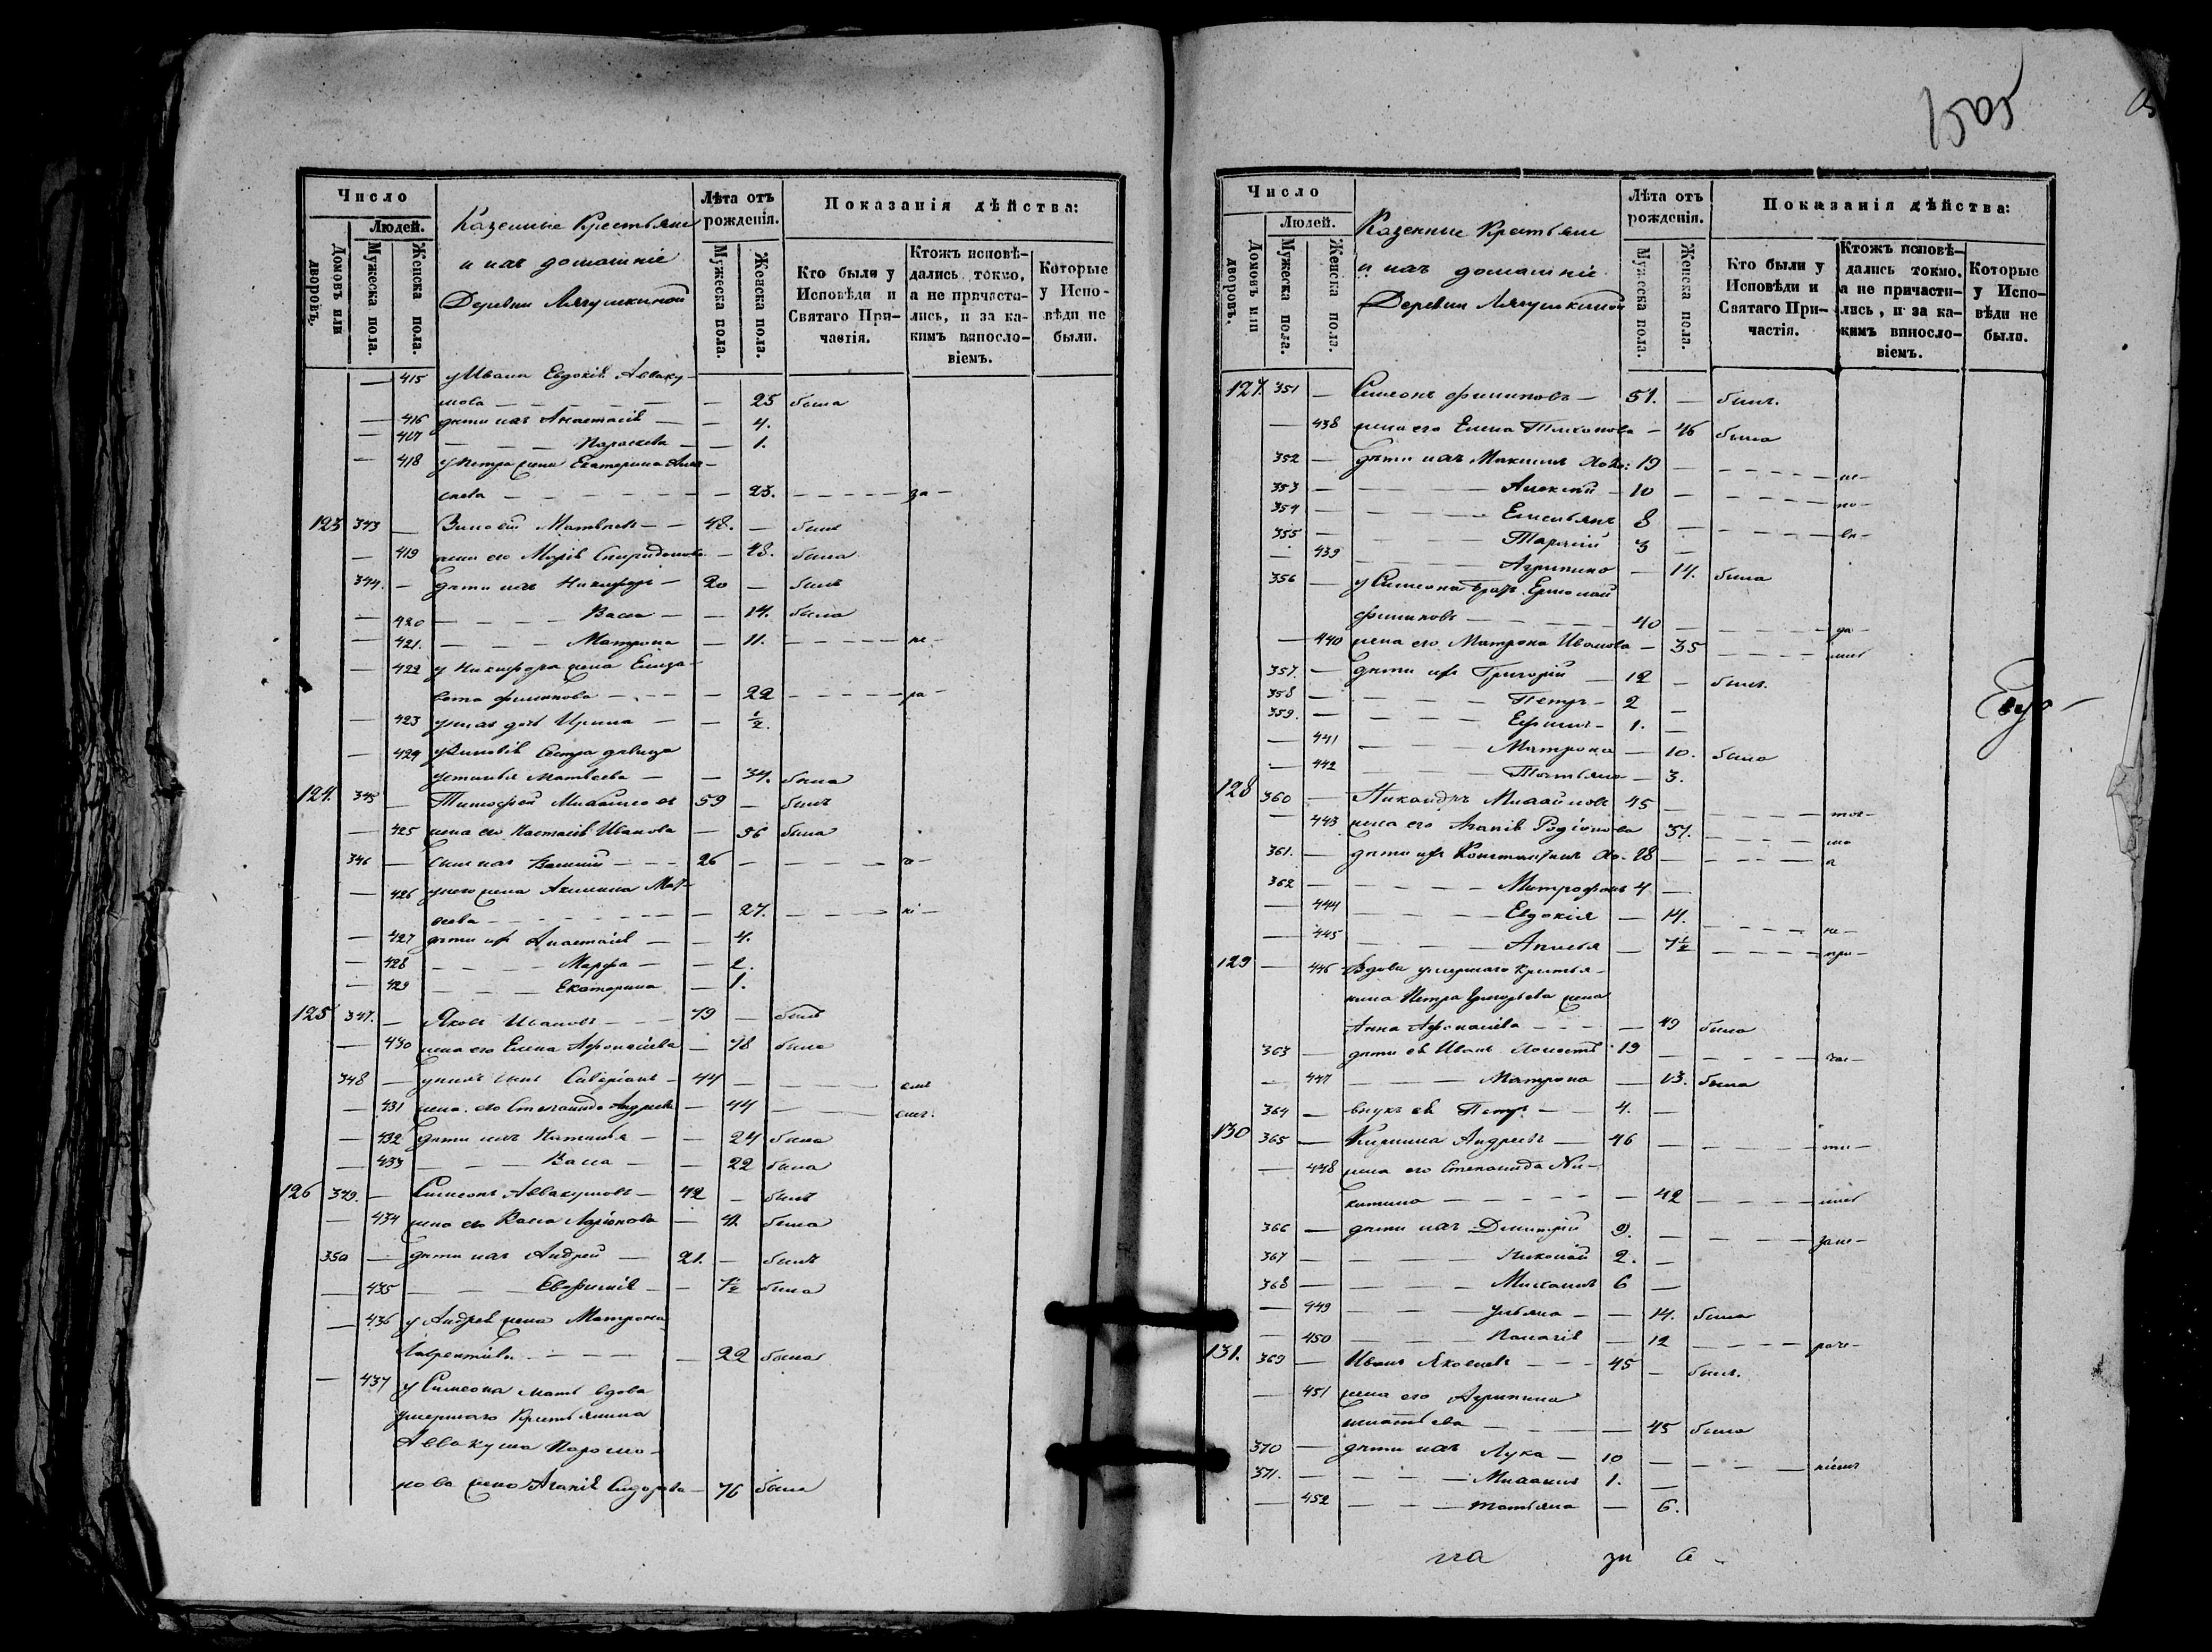 Число
Людей.
Домовъ или дворовъ.
Мужеска пола.
Женска пола.
Казенные Крестьяне
и ихъ домашніе
Деревни Лягушкиной
Лѣта отъ рожденія.
Мужеска пола.
Женска пола.
Показанія дѣйства:
Кто были у Исповѣди и Святаго Причастія.
Ктожъ исповѣдались токмо, а не причастились, и за какимъ винословіемъ.
Которые у Исповѣди не были.
— 415 у Ивана Евдокія Авваку-
мова — 25 была
— 416 дѣти ихъ Анастасія — 4.
— 417 — Параскева — 1.
— 418 у Петра жена Екатерина
— 23. — за —
123 343 — Зиновій Матвѣевъ — 48. — былъ
— 419 жена его Марія Спиридонова — 48. была
344. — дѣти ихъ Никифоръ — 20 — былъ
— 420 — Васса — 14. была
— 421. — Матрона — 11. — не —
— 422 у Никифора жена Елиза-
вета Филипова — 22 — ра —
— 423 у нихъ дочь Ирина — ½.
— 424 у Зиновія Сестра дѣвица
Устинья Матвѣева — 34. была
124. 345 — Тимофей Михайловъ 59 — былъ
— 425 жена его Настасія Иванова — 56 была
346 — Сынъ ихъ 26 —
— 426 у него жена Акилина Мат-
вѣева — 27. — ні —
— 427 дѣти ихъ Анастасія — 4.
— 428 — Марфа — 2.
— 429 — Екатерина — 1.
125 347. — Яковъ Ивановъ — 79 — былъ
— 430 жена его Елена Афонасіева — 78 была
348 — у нихъ сынъ Сиверіанъ — 44 —
— 431 жена его Степанида Андреева — 44 —
— 432 дѣти ихъ Наталья — 24 была
— 433 — Васса — 22 была
126 349. — Симеонъ Аввакумовъ — 42 — былъ
— 434 жена его Васса Ларіонова — была
350 — дѣти ихъ Андрей — 21. — былъ
— 435 — Евфимія — 7½ была
— 436 у Андрея жена Матрона
Лаврентіева — 22 была
— 437 у Симеона мать вдова
умершаго Крестьянина
Аввакума Парамо-
нова жена Агапія Сидорова — 76 была
1505
Число
Людей.
Домовъ или дворовъ.
Мужеска пола.
Женска пола.
Казенные Крестьяне
и ихъ домашніе
Деревни Лягушкиной
Лѣта отъ рожденія.
Мужеска пола.
Женска пола.
Показанія дѣйства:
Кто были у Исповѣди и Святаго Причастія.
Ктожъ исповѣдались токмо, а не причастились, и за какимъ винословіемъ.
Которые у Исповѣди не были.
127. 351 — Симеонъ Филиповъ — 51. — былъ.
— 438 жена его Елена Тихонова — 46 была
352 — дѣти ихъ Максимъ 19 —
353 — Алексѣй — 10 — по —
354 — Емельянъ 8 —
355 — Тарасій 3 —
— 439 — Агрипина — 14. была
356 — у Симеона братъ Ермолай
Филиповъ — 40 —
— 440 жена его Матрона Иванова — 35 —
357. — дѣти ихъ Григорій — 12 — былъ.
358 — Петръ — 2 —
359. — Ефимъ — 1. —
— 441 — Матрона — 10. была
— 442 — Татьяна — 3.
128 360 — Никандръ Михайловъ 45 —
— 443 жена его Агапія Родіонова 37. —
361. — дѣти ихъ Константинъ 18 —
362 — Митрофанъ 4 —
— 444 — Евдокія — 14. — не —
— 445 — 7½ — при —
129 — 446 Вдова умершаго крестья-
нина Петра Григорьева жена
Анна Афонасіева — 49 была
363 — дѣти ея Иванъ Холостъ 19 —
— 447 — Матрона — 13. была
364 — внукъ ея Петръ — 4. —
130 365 — Андреевъ — 46 —
— 448 жена его Степанида Ни-
китина — 42 —
366 — дѣти ихъ Димитрій 9. —
367 — Николай 2. —
368 — Михаилъ 6 —
— 449 — Ульяна — 14. была
— 450 — Палагія — 12 — раче —
131. 369 — Иванъ Яковлевъ — 45 — былъ.
— 451 жена его Агрипина
Игнатьева — 45 была
370 — дѣти ихъ Лука — 10 — ніемъ
371. — Михаилъ 1. —
— 452 — Татьяна — 6.